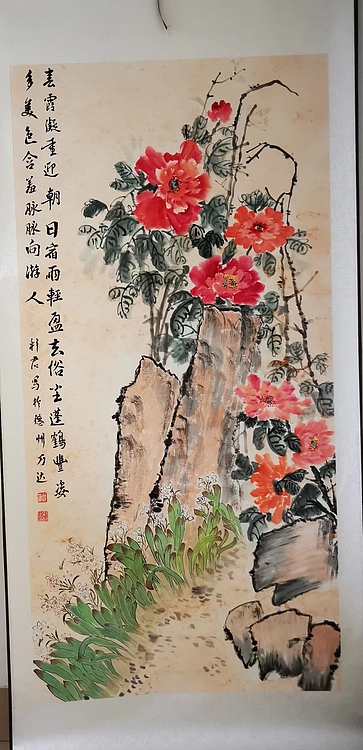 春霞凝重迎朝日宿雨輕盈去俗尘蓬鶴豐姿
多美色含羞脉脉向游人
君写於德州万达